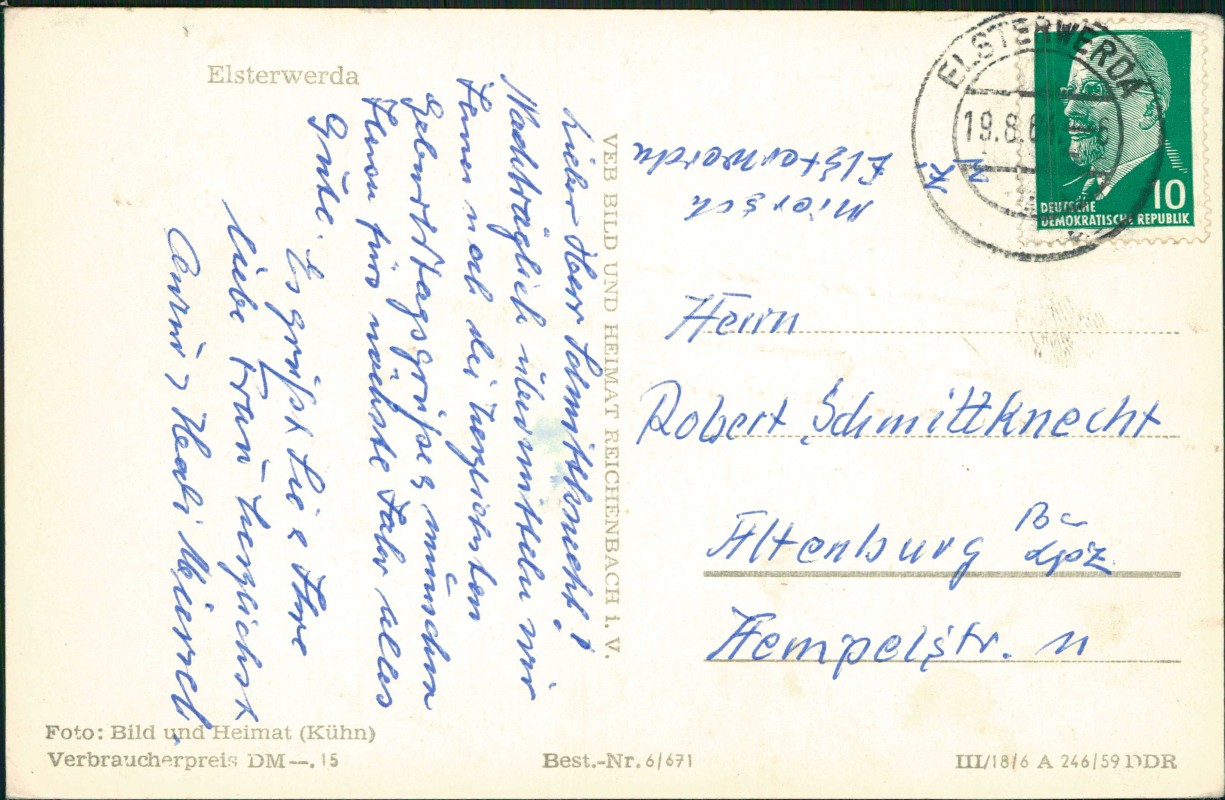 Elsterwerda
Lieber Herr Schmittknecht!
Nachträglich übermitteln wir
Ihnen noch die herzlichsten
Geburtstagsgrüße & wünschen
Ihnen fürs nächste Jahr alles
Gute.
Es grüßt Sie & Ihre
liebe Frau herzlichst
Hedi Miersch.
VEB BILD UND HEIMAT REICHENBACH i. V.
Miersch
Elsterwerda
ELSTERWERDA
19.8.6
DEUTSCHE
DEMOKRATISCHE REPUBLIK
10
Herrn
Robert Schmittknecht
Altenburg Bz
Lpz
Hempelstr. 11
Foto: Bild und Heimat (Kühn)
Verbraucherpreis DM —.15
Best.-Nr. 6/671
III/18/6 A 246/59 DDR